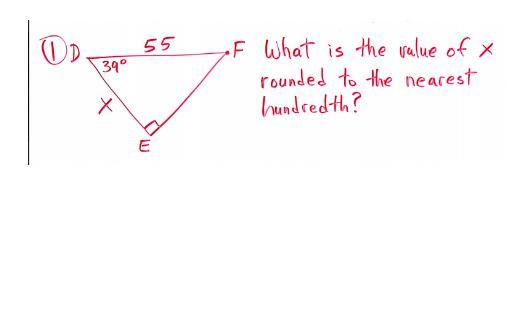 ① D 55 F What is the value of x
39° rounded to the nearest
x hundredth?
E